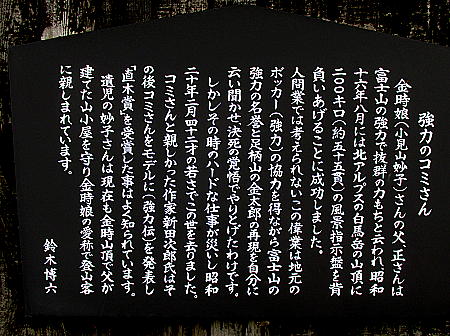 強力のコミさん
金時娘(小見山妙子)さんの父、正さんは
富士山の強力で抜群の力もちと云われ、昭和
十六年八月には北アルプスの白馬岳の山頂に
二〇〇キロ(約五十五貫)の風景指示盤を背
負いあげることに成功しました。
人間業では考えられないこの偉業は地元の
ボッカー(強力)の協力を得ながら「富士山の
強力の名誉と足柄山の金太郎の再現を」自分に
云い聞かせ、決死の覚悟でやりとげたわけです。
しかしその時のハードな仕事が災いし昭和
二十年二月四十二才の若さでこの世を去りました。
コミさんと親しかった作家新田次郎氏はそ
の後コミさんをモデルに〈強力伝〉を発表し
「直木賞」を受賞した事はよく知られています。
遺児の妙子さんは現在も金時山頂で父が
建てた山小屋を守り金時娘の愛称で登山客
に親しまれています。
鈴木博六